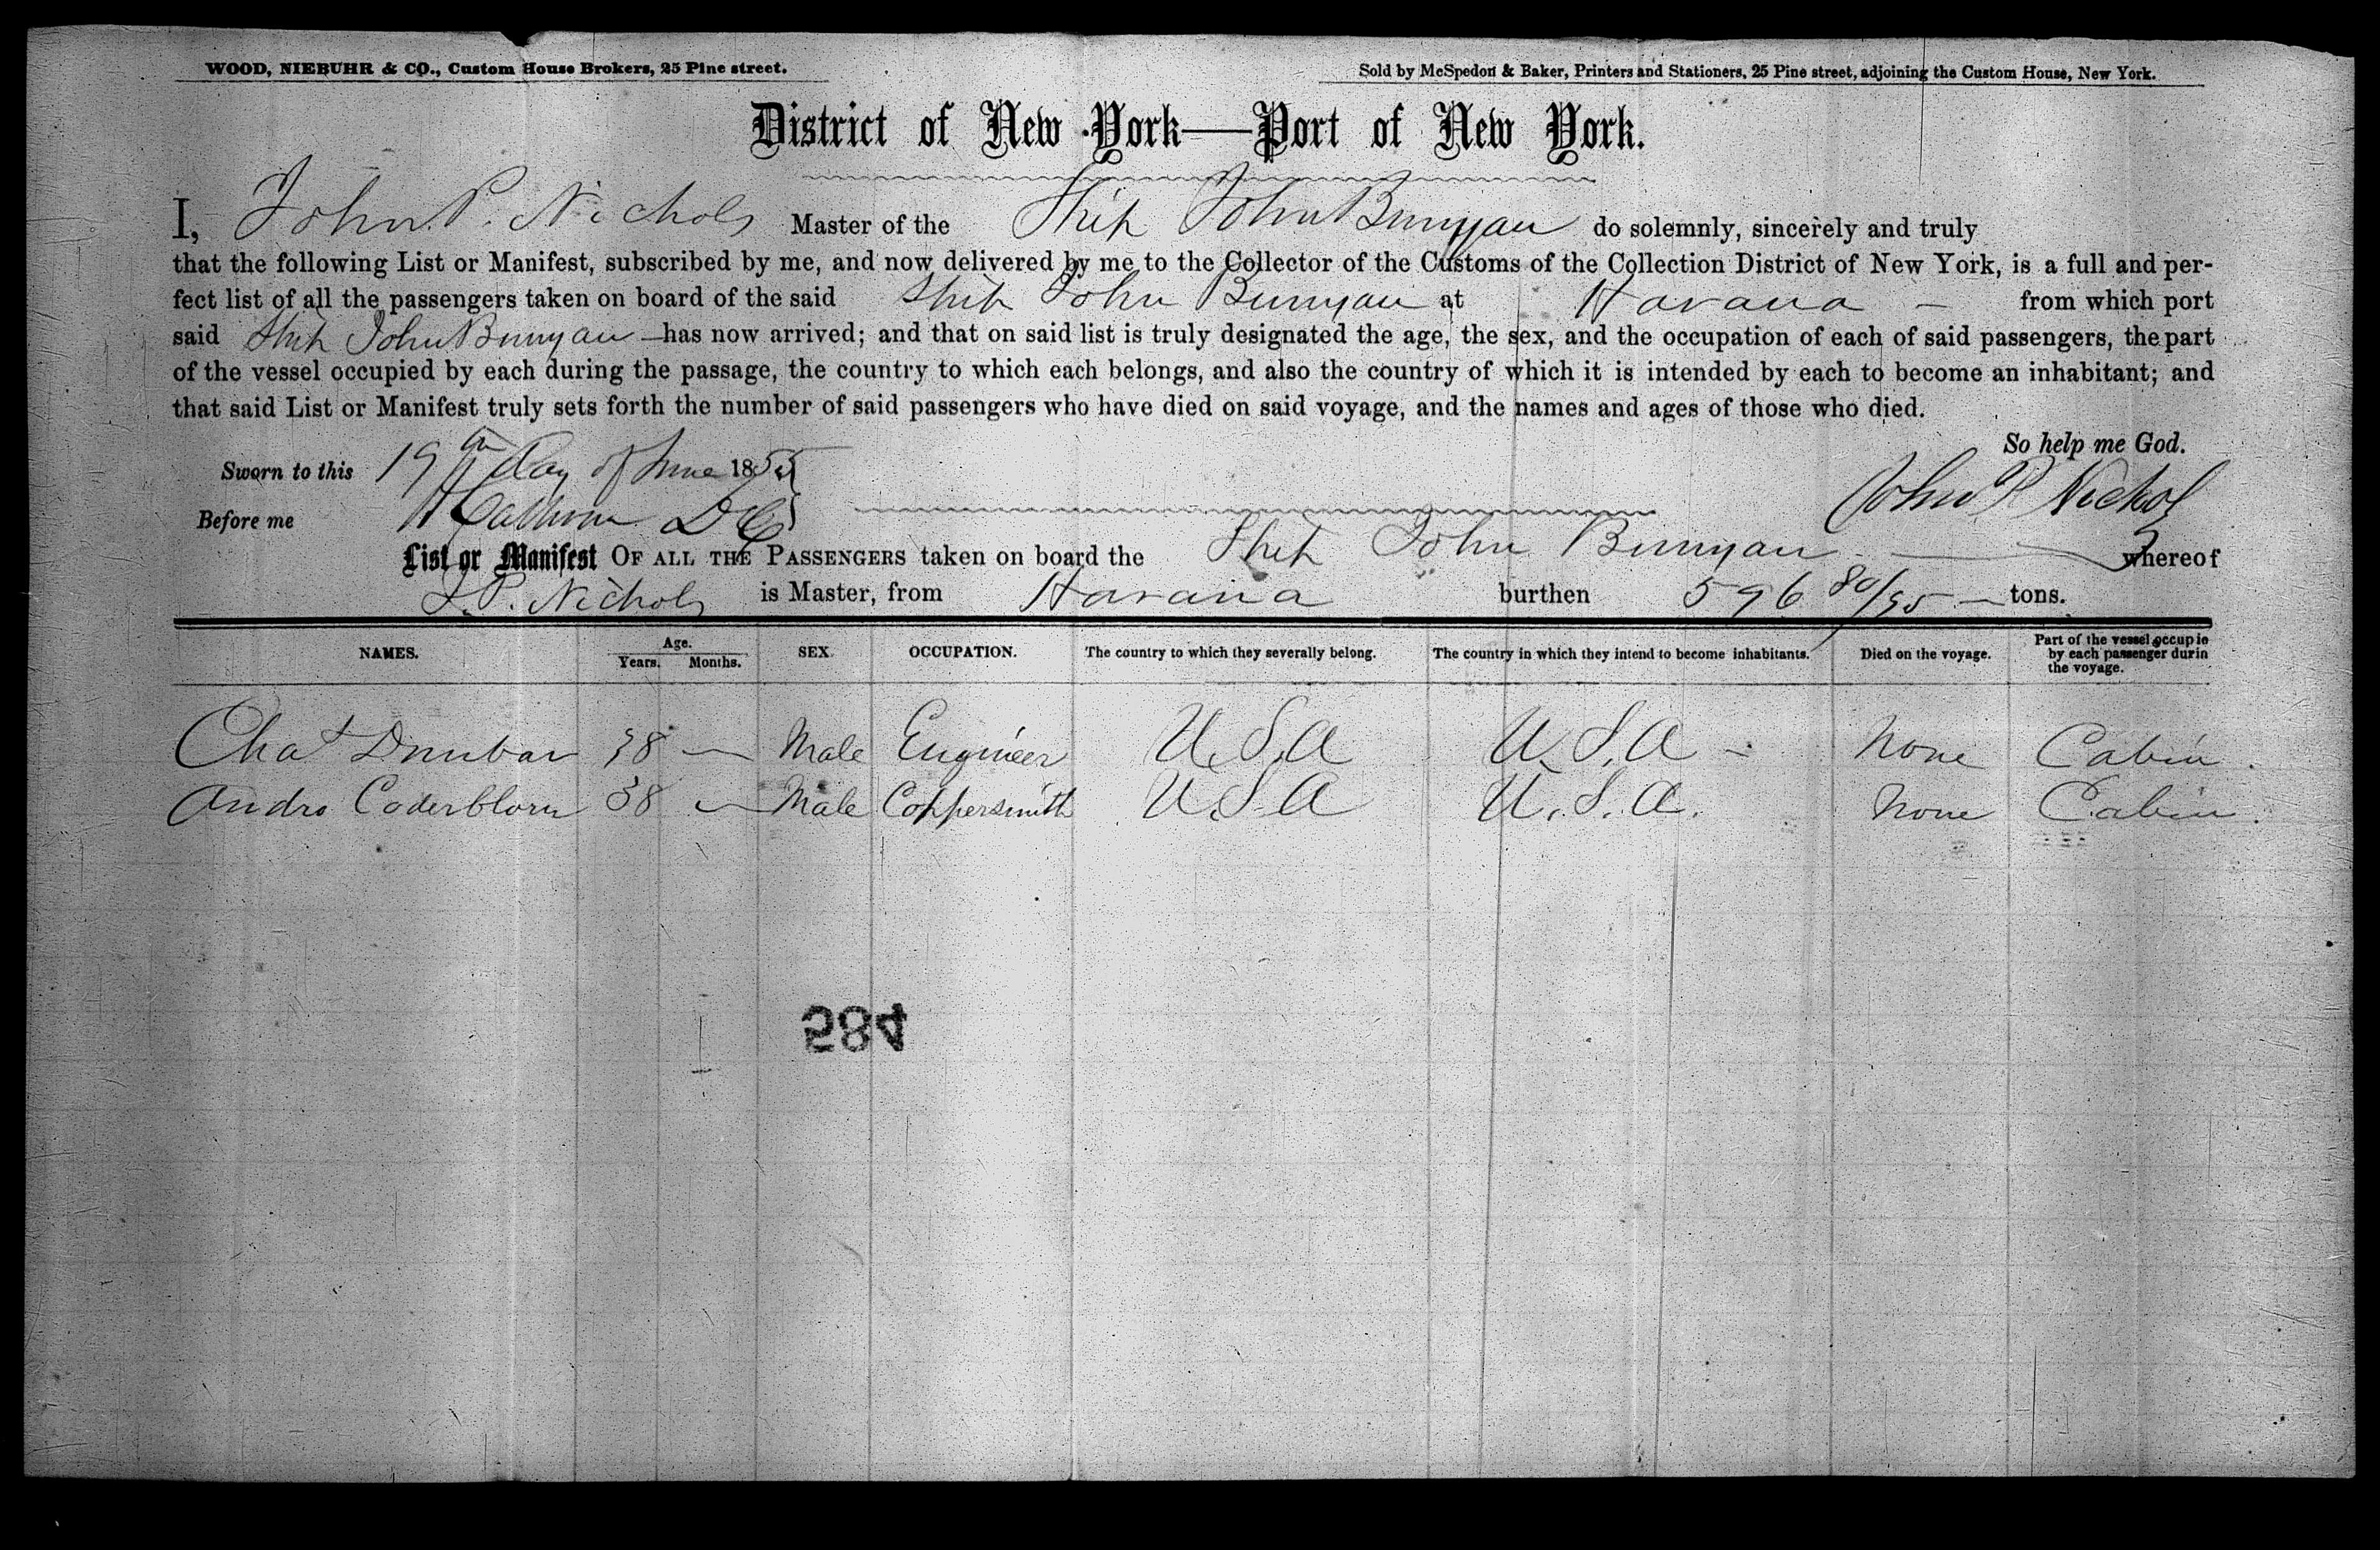 WOOD, NIEBUHR & CO., Custom House Brokers, 25 Pine street.
Sold by McSpedon & Baker, Printers and Stationers, 25 Pine street, adjoining the Custom House, New York.
District of New York—Port of New York.
I, John P. Nichols Master of the Ship John Bunyan do solemnly, sincerely and truly
that the following List or Manifest, subscribed by me, and now delivered by me to the Collector of the Customs of the Collection District of New York, is a full and per-
fect list of all the passengers taken on board of the said Ship John Bunyan at Havana — from which port
said Ship John Bunyan — has now arrived; and that on said list is truly designated the age, the sex, and the occupation of each of said passengers, the part
of the vessel occupied by each during the passage, the country to which each belongs, and also the country of which it is intended by each to become an inhabitant; and
that said List or Manifest truly sets forth the number of said passengers who have died on said voyage, and the names and ages of those who died.
So help me God.
Sworn to this 19th day of June 1855
John P Nichols
Before me Calhoun
List or Manifest OF ALL THE PASSENGERS taken on board the Ship John Bunyan — whereof
J. P. Nichols is Master, from Havana burthen 596 80/95 — tons.
NAMES. Age. Years. Months. SEX. OCCUPATION. The country to which they severally belong. The country in which they intend to become inhabitants. Died on the voyage. Part of the vessel occupie by each passenger durin the voyage.
Chas Dunbar 38 — Male Engineer U.S.A U.S.A — None Cabin.
Andro Coderblorn 38 — Male Coppersmith U.S.A U.S.A. None Cabin.
584